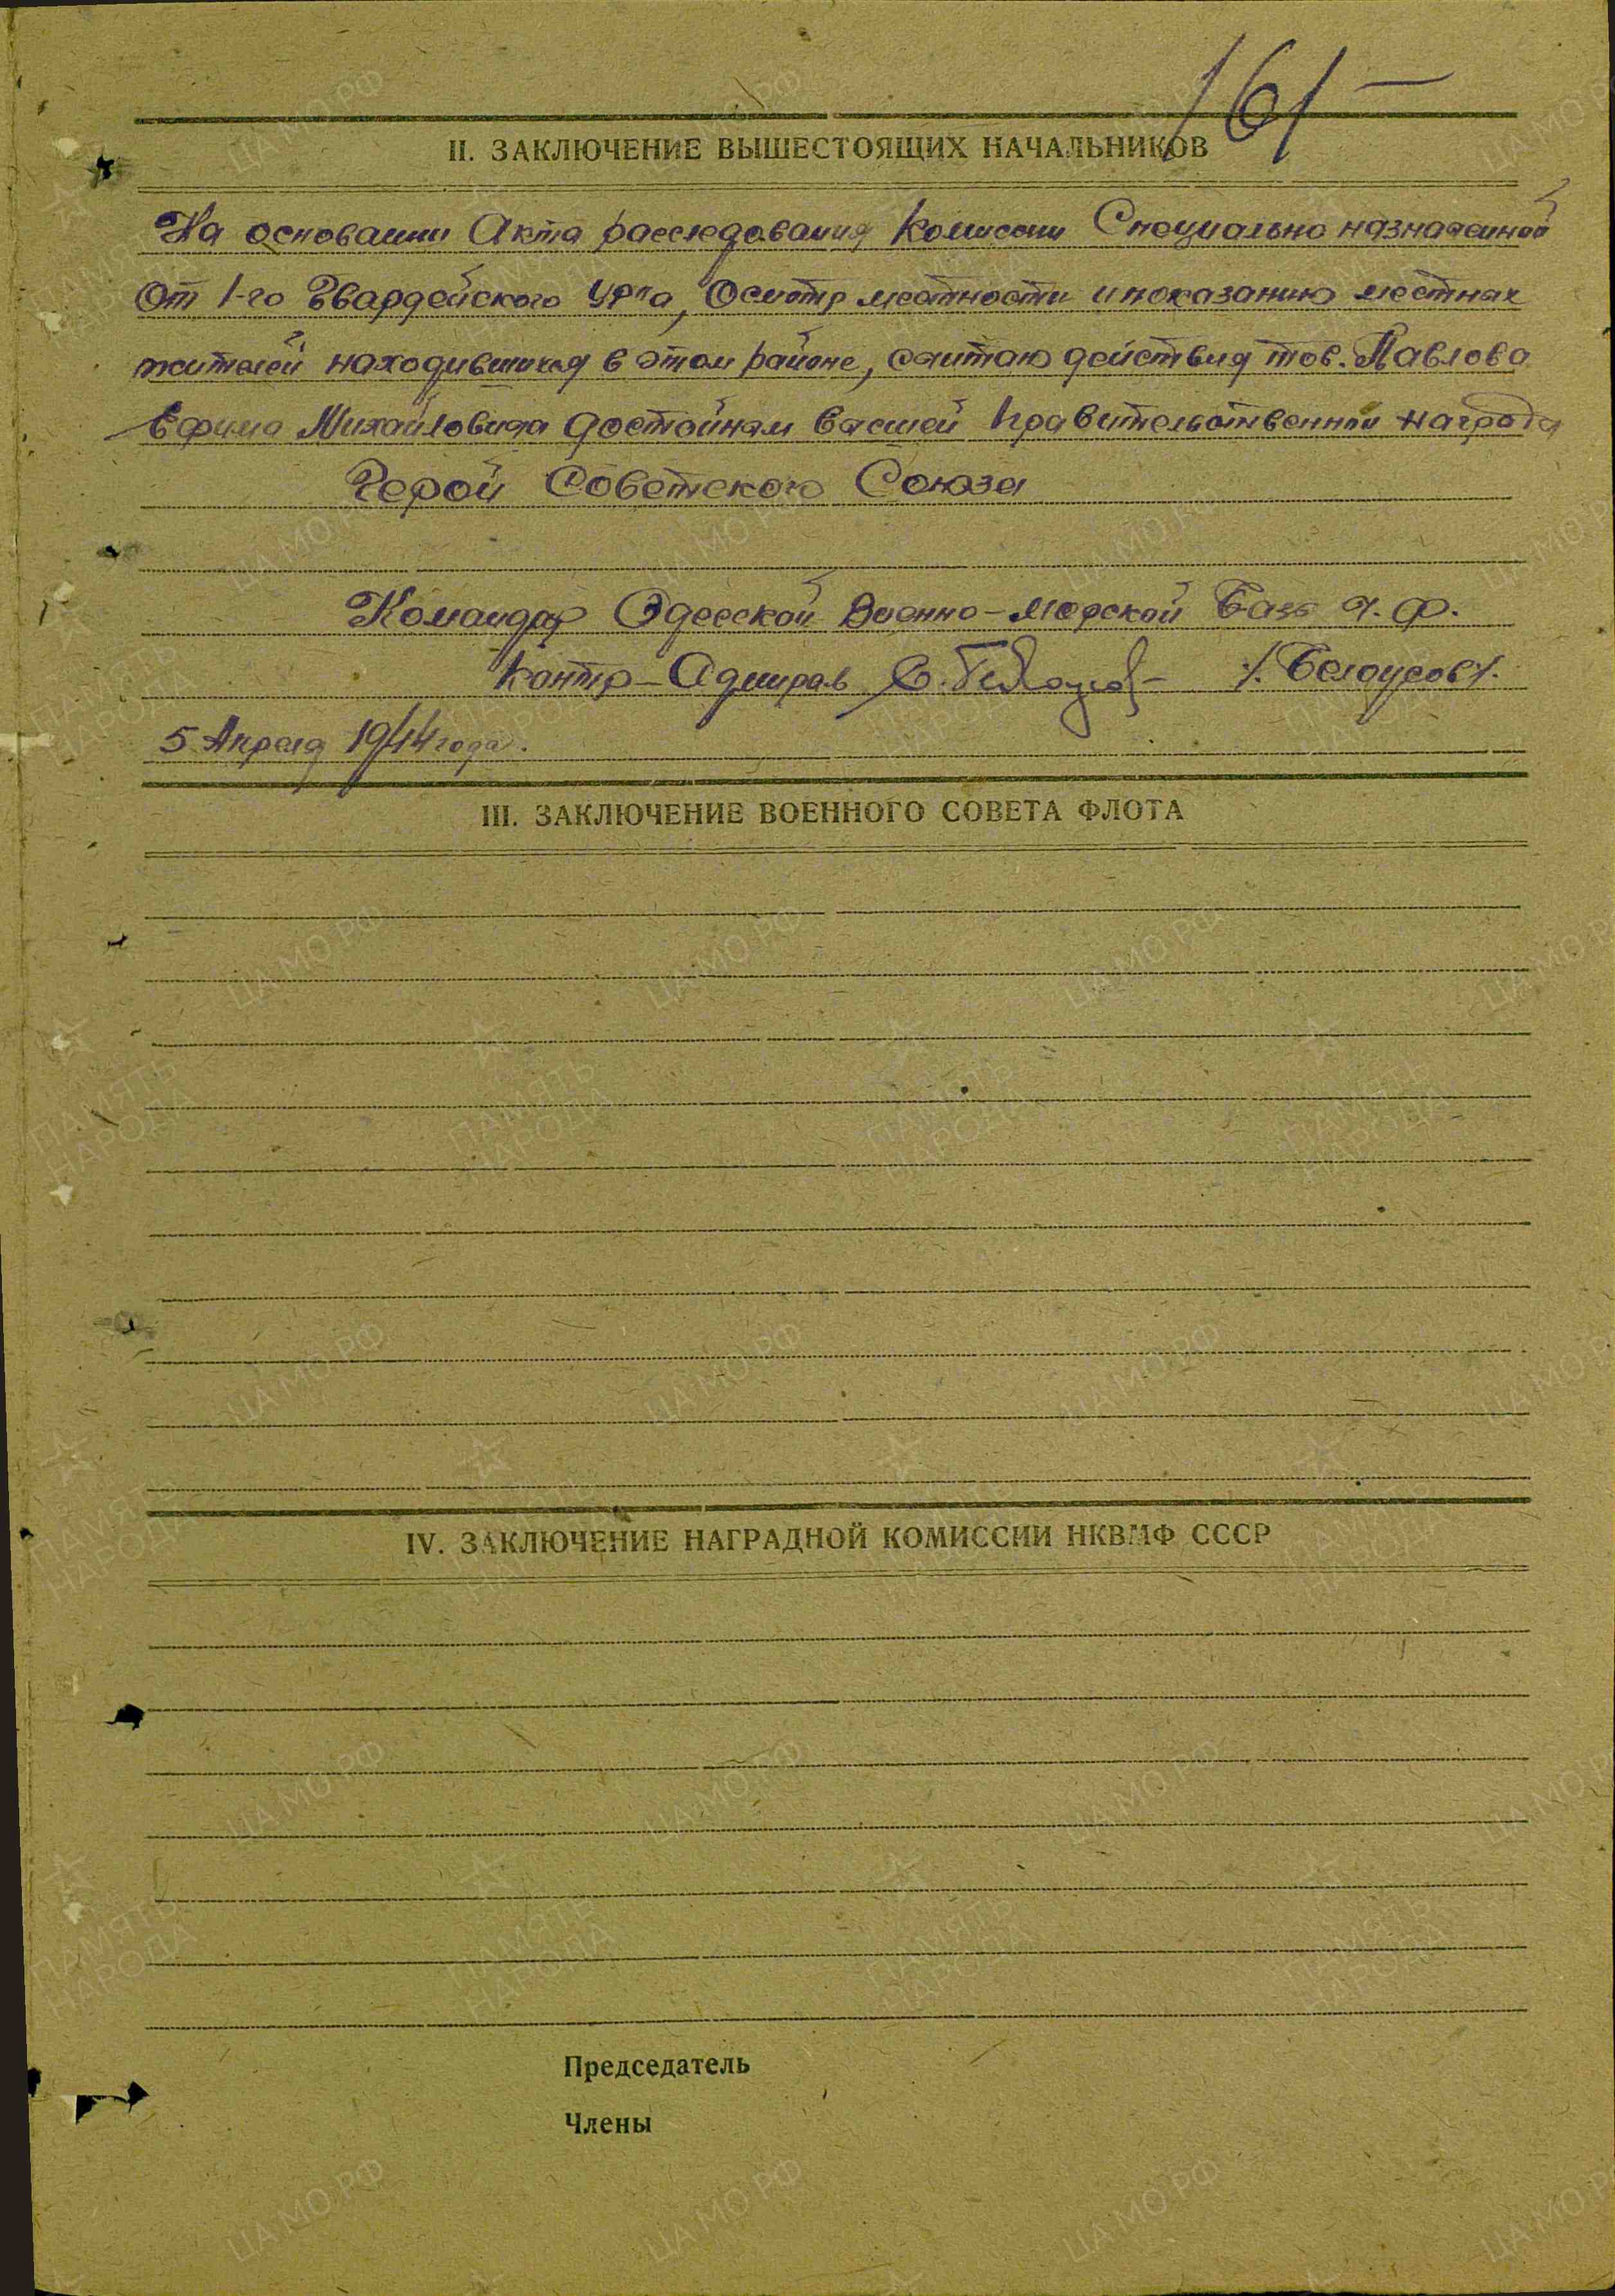 161
II. ЗАКЛЮЧЕНИЕ ВЫШЕСТОЯЩИХ НАЧАЛЬНИКОВ
На основании Акта расследования Комиссии Специально назначенной
От 1-го Гвардейского УР'а, Осмотр местности и показанию местных
жителей находившихся в этом районе, считаю действия тов. Павлова
Ефима Михайловича достойным высшей Правительственной награды
Герой Советского Союза
Командир Одесской Военно-Морской Базы Ч.Ф.
Контр-Адмирал С. Белоусов /Белоусов/.
5 Апреля 1944 года.
III. ЗАКЛЮЧЕНИЕ ВОЕННОГО СОВЕТА ФЛОТА
IV. ЗАКЛЮЧЕНИЕ НАГРАДНОЙ КОМИССИИ НКВМФ СССР
Председатель
Члены
ЦА МО РФ
ПАМЯТЬ НАРОДА